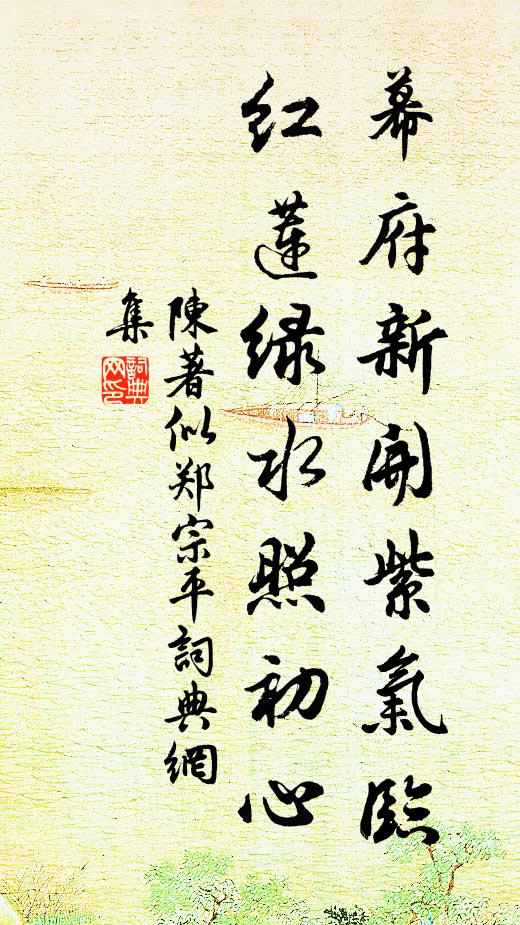 幕府新開紫氣臨
红蓮绿水照初心
陳著似郑宗平詞典網
集
詞典网印